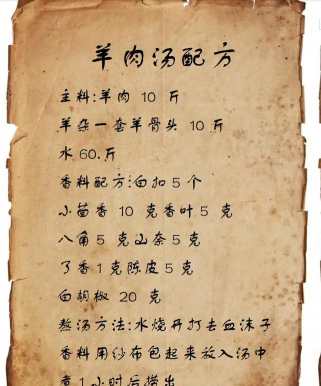 羊肉汤配方
主料:羊肉 10 斤
羊杂一套羊骨头 10 斤
水 60.斤
香料配方:白扣 5 个
小茴香 10 克香叶 5 克
八角 5 克山奈 5 克
丁香 1 克陈皮 5 克
白胡椒 20 克
熬汤方法:水烧开打去血沫子
香料用纱布包起来放入汤中
煮 1 小时后捞出